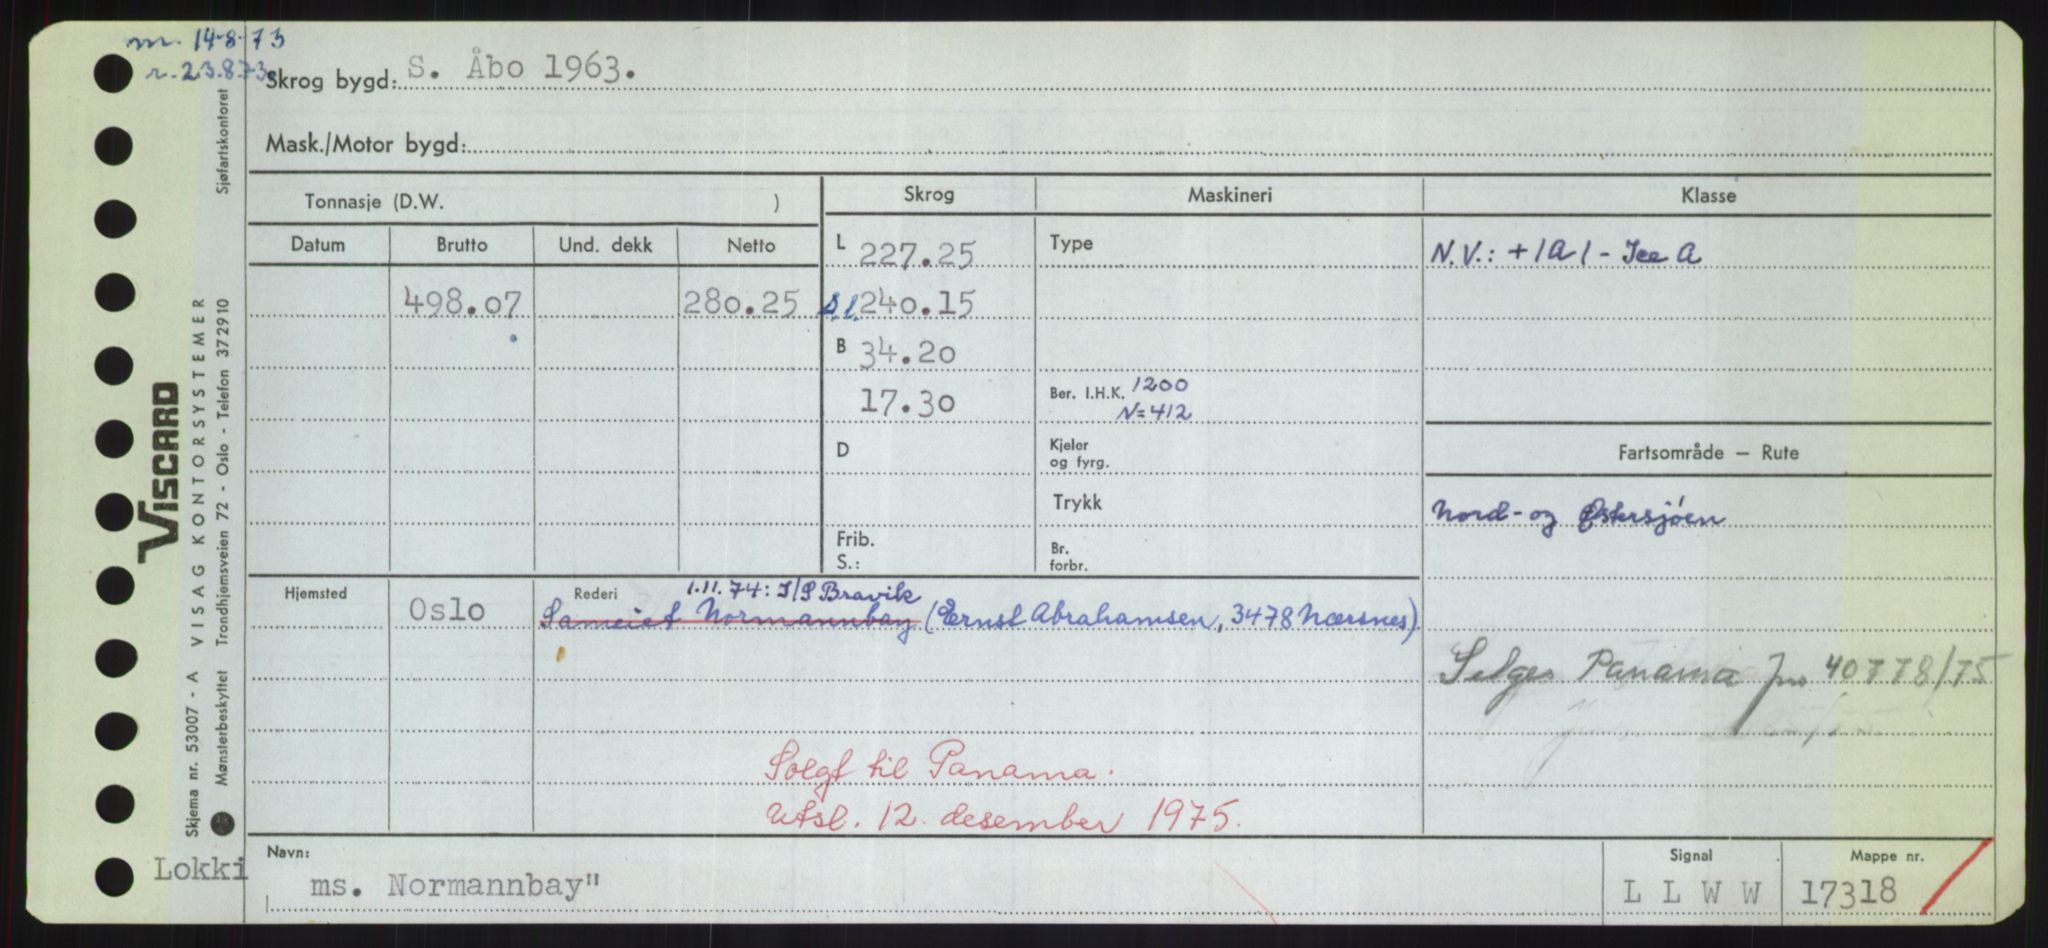 m. 14-8-73
r. 23.8.73
Skrog bygd: S. Åbo 1963.
Mask./Motor bygd:
Tonnasje (D.W. )
Skrog
Maskineri
Klasse
Datum
Brutto
Und. dekk
Netto
L 227.25
Type
N.V.: +1A1 - Ice A
498.07
280.25
S.l. 240.15
B 34.20
17.30
Ber. I.H.K. 1200
N=412
D
Kjeler
og fyrg.
Fartsområde — Rute
Trykk
Nord- og Østersjøen
Frib.
S.:
Br.
forbr.
Hjemsted
Oslo
Rederi
1.11.74: I/S Bravik
Sameiet Normannbay (Ernst Abrahamsen, 3478 Nærsnes)
Selges Panama Jnr 40778/75
Solgt til Panama.
Utsl. 12. desember 1975.
Lokki
Navn:
ms. Normannbay"
Signal
L L W W
Mappe nr.
17318
VISCARD
Skjema nr. 53007 - A VISAG KONTORSYSTEMER
Mønsterbeskyttet Trondhjemsveien 72 - Oslo - Telefon 372910
Sjøfartskontoret